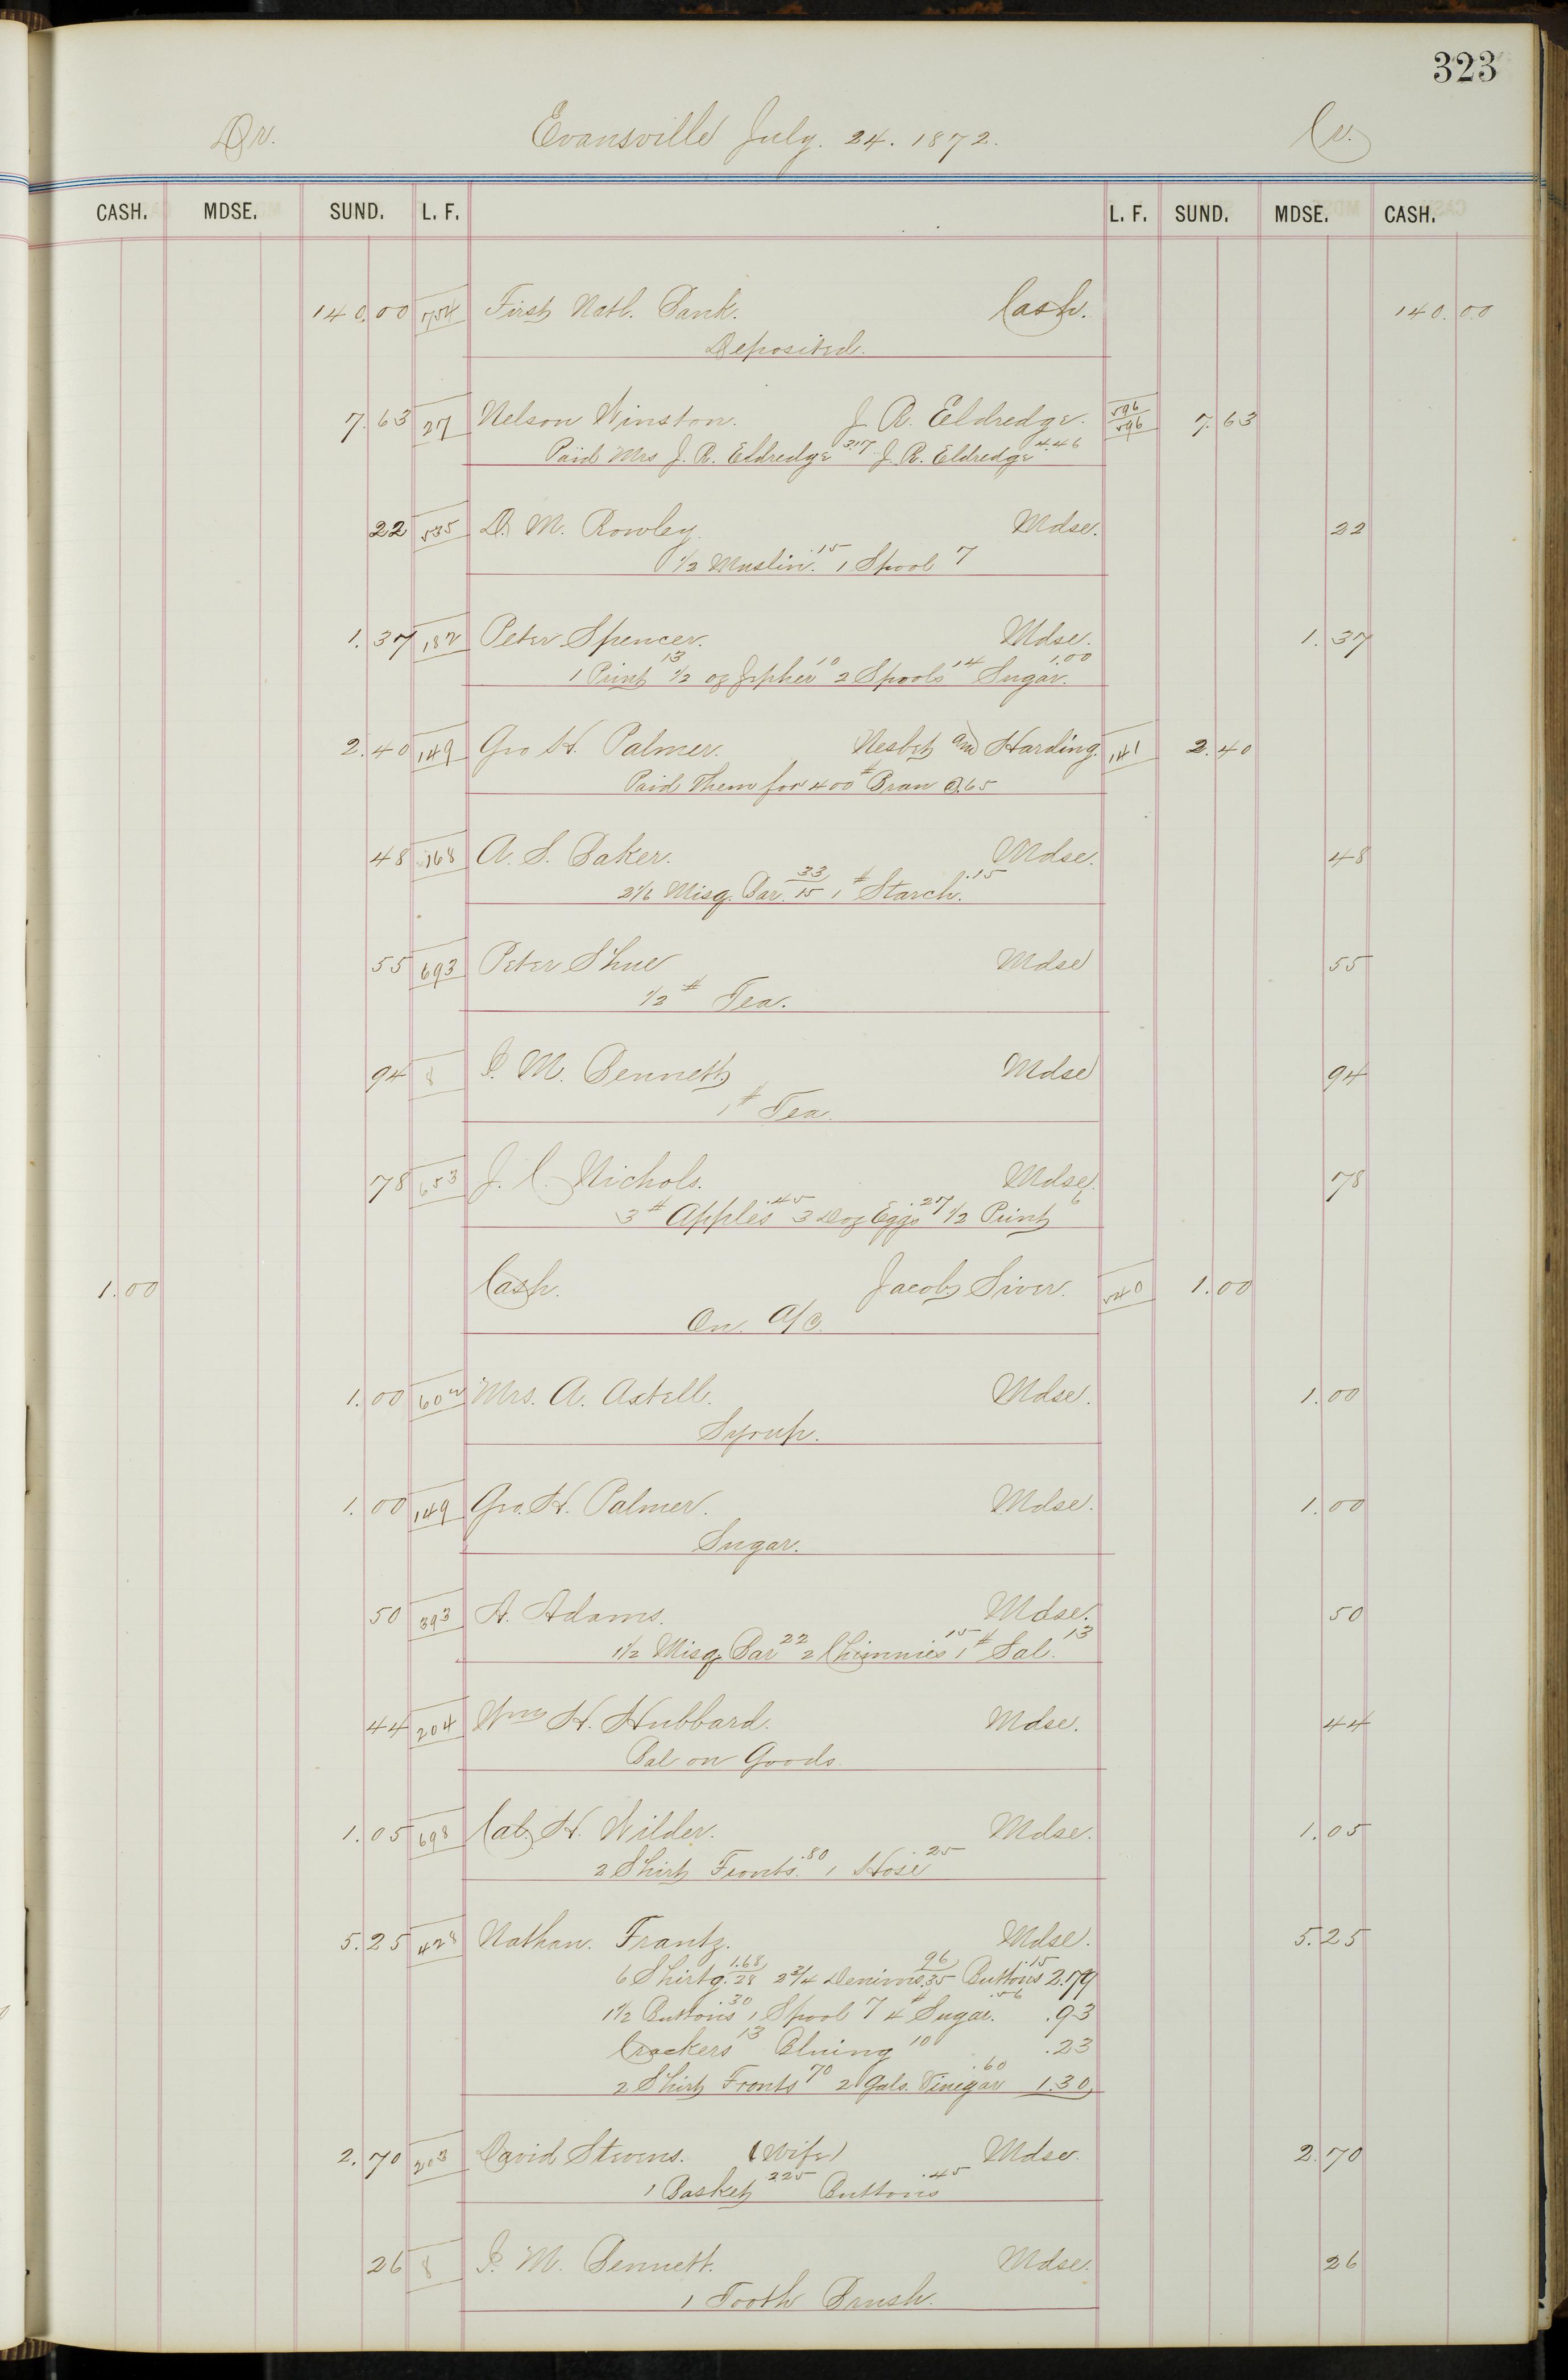 323
Dr. Evansville July. 24. 1872. Cr.
CASH. MDSE. SUND. L. F. L. F. SUND. MDSE. CASH.
140.00 754 First Natl. Bank. Cash. 140.00
Deposited.
7.63 27 Nelson Winston. J. R. Eldredge. 596 596 7.63
Paid Mrs J. R. Eldredge 3.17 J. R. Eldredge 4.46
22 535 D. M. Rowley. Mdse. 22
1/2 Muslin. .15 1 Spool 7
1.37 182 Peter Spencer. Mdse. 1.37
1 Print 13 1/2 oz Zepher 10 2 Spools 14 Sugar. 1.00
2.40 149 Geo H. Palmer. Nesbit and Harding. 141 2.40
Paid Them for 400 # Bran @.65
48 168 A. S. Baker. Mdse. 48
2 1/6 Misq. Bar. 33/15 1 # Starch. .15
55 693 Peter Shue Mdse 55
1/2 # Tea.
94 8 I. M. Bennett Mdse 94
1 # Tea.
78 653 J. C. Nichols. Mdse. 78
3 # Apples .45 3 Doz Eggs .27 1/2 Print 6
1.00 Cash. Jacob Siver. 540 1.00
On. A/C.
1.00 602 Mrs. A. Axtell. Mdse. 1.00
Syrup.
1.00 149 Geo. H. Palmer. Mdse. 1.00
Sugar.
50 393 A. Adams. Mdse. 50
1 1/2 Misq Bar 22 2 Chimnies 15 1 # Sal. 13
44 204 Wm H. Hubbard. Mdse. 44
Bal on Goods.
1.05 698 Cal. H. Wilder. Mdse. 1.05
2 Shirt Fronts. .80 1 Hose .25
5.25 428 Nathan. Frantz. Mdse. 5.25
6 Shirtg. 1.68/28 2 3/4 Denims. 96/35 Buttons .15 2.79
1 1/2 Buttons .30 1 Spool 7 4 # Sugar. .56 .93
Crackers 13 Bluing 10 .23
2 Shirt Fronts 70 2 Gals. Vinegar .60 1.30
2.70 203 David Stevens. (Wife) Mdse. 2.70
1 Basket 225 Buttons .45
26 8 I. M. Bennett. Mdse. 26
1 Tooth Brush.